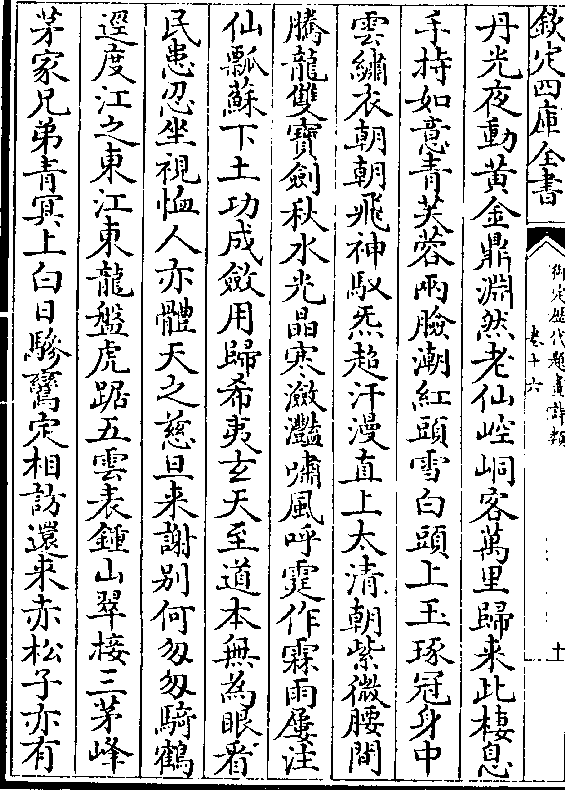 欽定四庫全書
御定歷代題畫詩類
卷十六
十
丹光夜動黃金鼎淵然老仙崆峒客萬里歸來此棲息
手持如意青芙蓉兩臉潮紅頭雪白頭上玉琢冠身中
雲繡衣朝朝飛神馭炁超汗漫直上太清朝紫微腰間
騰龍雙寶劍秋水光晶寒瀲灩嘯風呼霆作霖雨屢注
仙瓢蘇下土功成斂用歸希夷玄天至道本無為眼看
民患忍坐視恤人亦體天之慈旦来謝别何匆匆騎鶴
逕度江之東江東龍盤虎踞五雲表鍾山翠接三茅峰
茅家兄弟青冥上白日驂鸞定相訪還来赤松子亦有